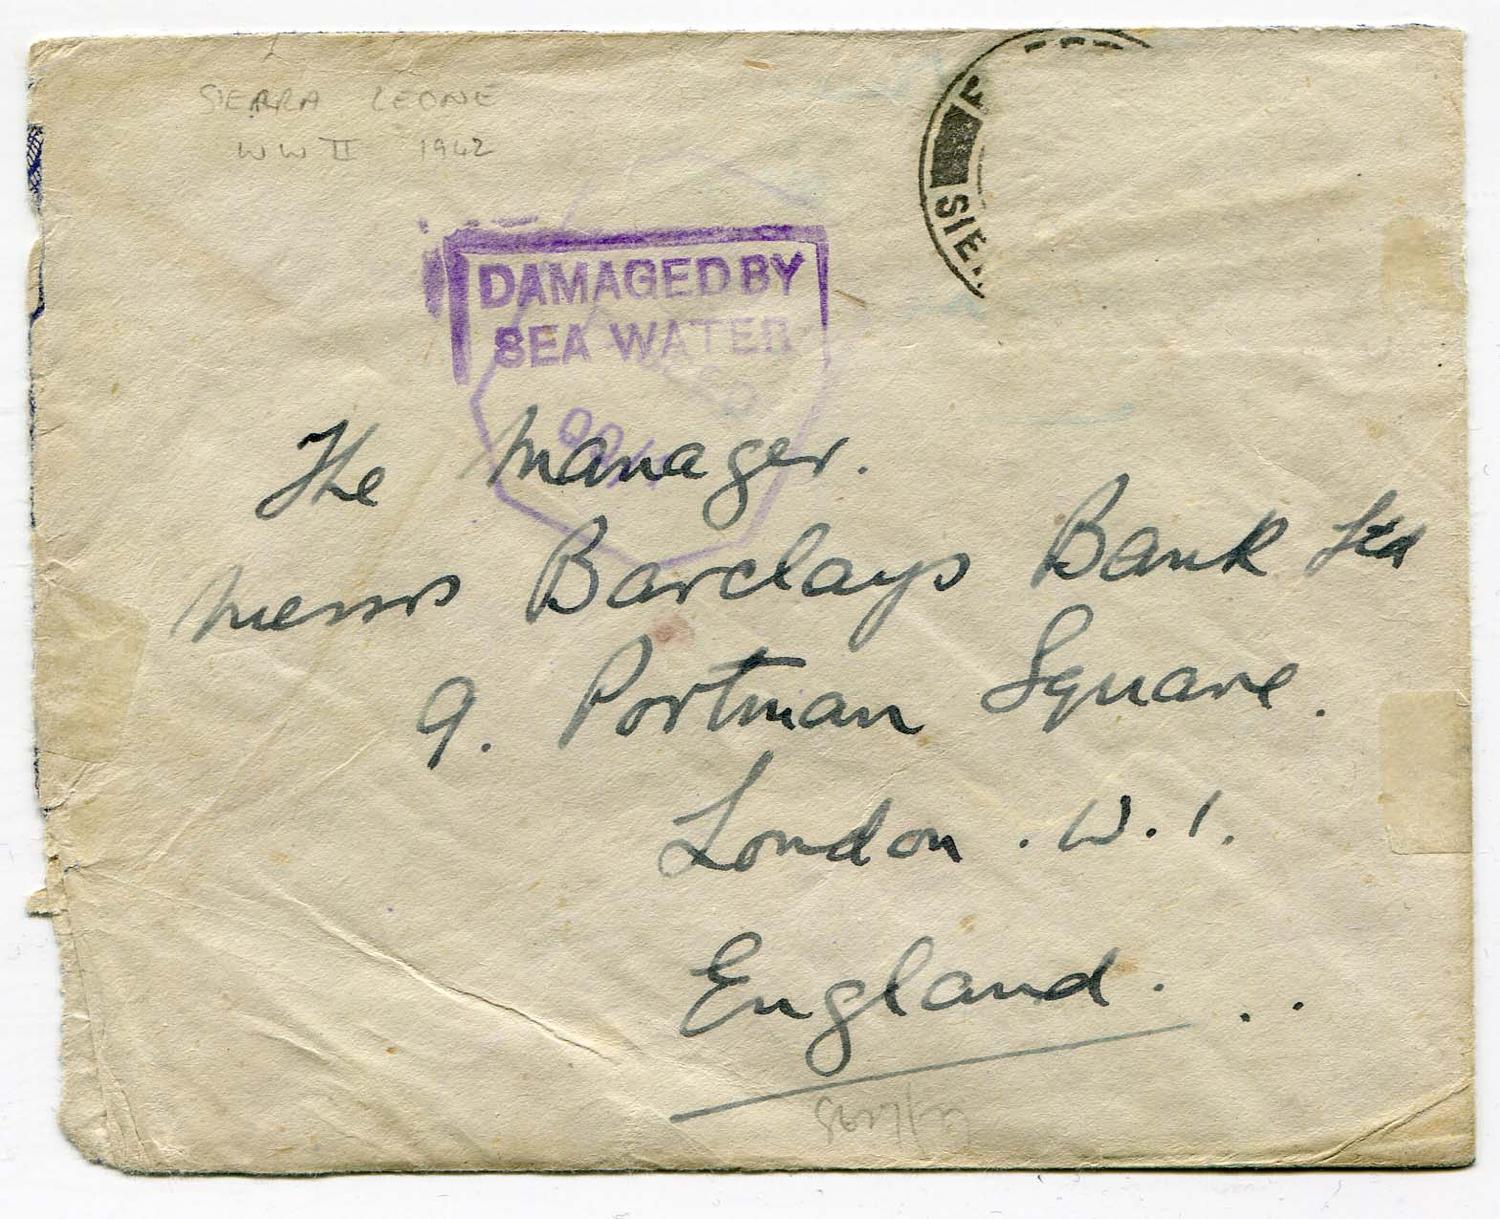 SIERRA LEONE
WW II 1942
SIER
DAMAGED BY
SEA WATER
The Manager.
Messrs Barclays Bank Ltd
9. Portman Square.
London. W. 1.
England...